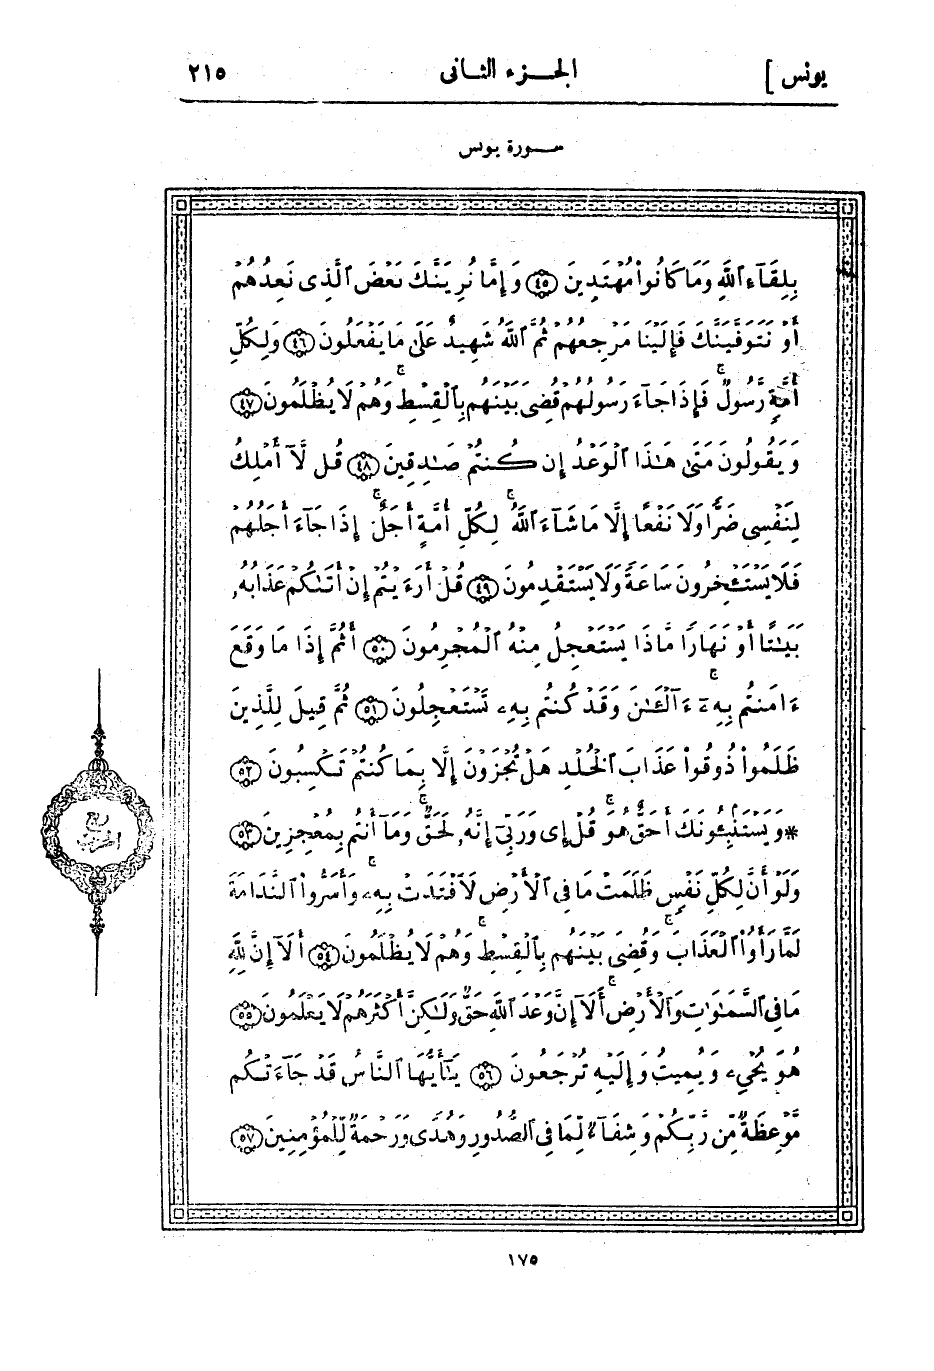 يونس ]
الجزء الثانى
٢١٥
سورة يونس
بِلِقَآءِ ٱللَّهِ وَمَا كَانُوا۟ مُهْتَدِينَ ﴿٤٥﴾ وَإِمَّا نُرِيَنَّكَ بَعْضَ ٱلَّذِى نَعِدُهُمْ
أَوْ نَتَوَفَّيَنَّكَ فَإِلَيْنَا مَرْجِعُهُمْ ثُمَّ ٱللَّهُ شَهِيدٌ عَلَىٰ مَا يَفْعَلُونَ ﴿٤٦﴾ وَلِكُلِّ
أُمَّةٍ رَّسُولٌ ۖ فَإِذَا جَآءَ رَسُولُهُمْ قُضِىَ بَيْنَهُم بِٱلْقِسْطِ وَهُمْ لَا يُظْلَمُونَ ﴿٤٧﴾
وَيَقُولُونَ مَتَىٰ هَـٰذَا ٱلْوَعْدُ إِن كُنتُمْ صَـٰدِقِينَ ﴿٤٨﴾ قُل لَّآ أَمْلِكُ
لِنَفْسِى ضَرًّا وَلَا نَفْعًا إِلَّا مَا شَآءَ ٱللَّهُ ۗ لِكُلِّ أُمَّةٍ أَجَلٌ ۚ إِذَا جَآءَ أَجَلُهُمْ
فَلَا يَسْتَـْٔخِرُونَ سَاعَةً وَلَا يَسْتَقْدِمُونَ ﴿٤٩﴾ قُلْ أَرَءَيْتُمْ إِنْ أَتَىٰكُمْ عَذَابُهُۥ
بَيَـٰتًا أَوْ نَهَارًا مَّاذَا يَسْتَعْجِلُ مِنْهُ ٱلْمُجْرِمُونَ ﴿٥٠﴾ أَثُمَّ إِذَا مَا وَقَعَ
ءَامَنتُم بِهِۦٓ ۚ ءَآلْـَٔـٰنَ وَقَدْ كُنتُم بِهِۦ تَسْتَعْجِلُونَ ﴿٥١﴾ ثُمَّ قِيلَ لِلَّذِينَ
ظَلَمُوا۟ ذُوقُوا۟ عَذَابَ ٱلْخُلْدِ هَلْ تُجْزَوْنَ إِلَّا بِمَا كُنتُمْ تَكْسِبُونَ ﴿٥٢﴾
* وَيَسْتَنۢبِـُٔونَكَ أَحَقٌّ هُوَ ۖ قُلْ إِى وَرَبِّىٓ إِنَّهُۥ لَحَقٌّ ۖ وَمَآ أَنتُم بِمُعْجِزِينَ ﴿٥٣﴾
وَلَوْ أَنَّ لِكُلِّ نَفْسٍ ظَلَمَتْ مَا فِى ٱلْأَرْضِ لَٱفْتَدَتْ بِهِۦ ۗ وَأَسَرُّوا۟ ٱلنَّدَامَةَ
لَمَّا رَأَوُا۟ ٱلْعَذَابَ ۖ وَقُضِىَ بَيْنَهُم بِٱلْقِسْطِ ۚ وَهُمْ لَا يُظْلَمُونَ ﴿٥٤﴾ أَلَآ إِنَّ لِلَّهِ
مَا فِى ٱلسَّمَـٰوَٰتِ وَٱلْأَرْضِ ۗ أَلَآ إِنَّ وَعْدَ ٱللَّهِ حَقٌّ وَلَـٰكِنَّ أَكْثَرَهُمْ لَا يَعْلَمُونَ ﴿٥٥﴾
هُوَ يُحْىِۦ وَيُمِيتُ وَإِلَيْهِ تُرْجَعُونَ ﴿٥٦﴾ يَـٰٓأَيُّهَا ٱلنَّاسُ قَدْ جَآءَتْكُم
مَّوْعِظَةٌ مِّن رَّبِّكُمْ وَشِفَآءٌ لِّمَا فِى ٱلصُّدُورِ وَهُدًى وَرَحْمَةٌ لِّلْمُؤْمِنِينَ ﴿٥٧﴾
ربع
الحزب
١٧٥